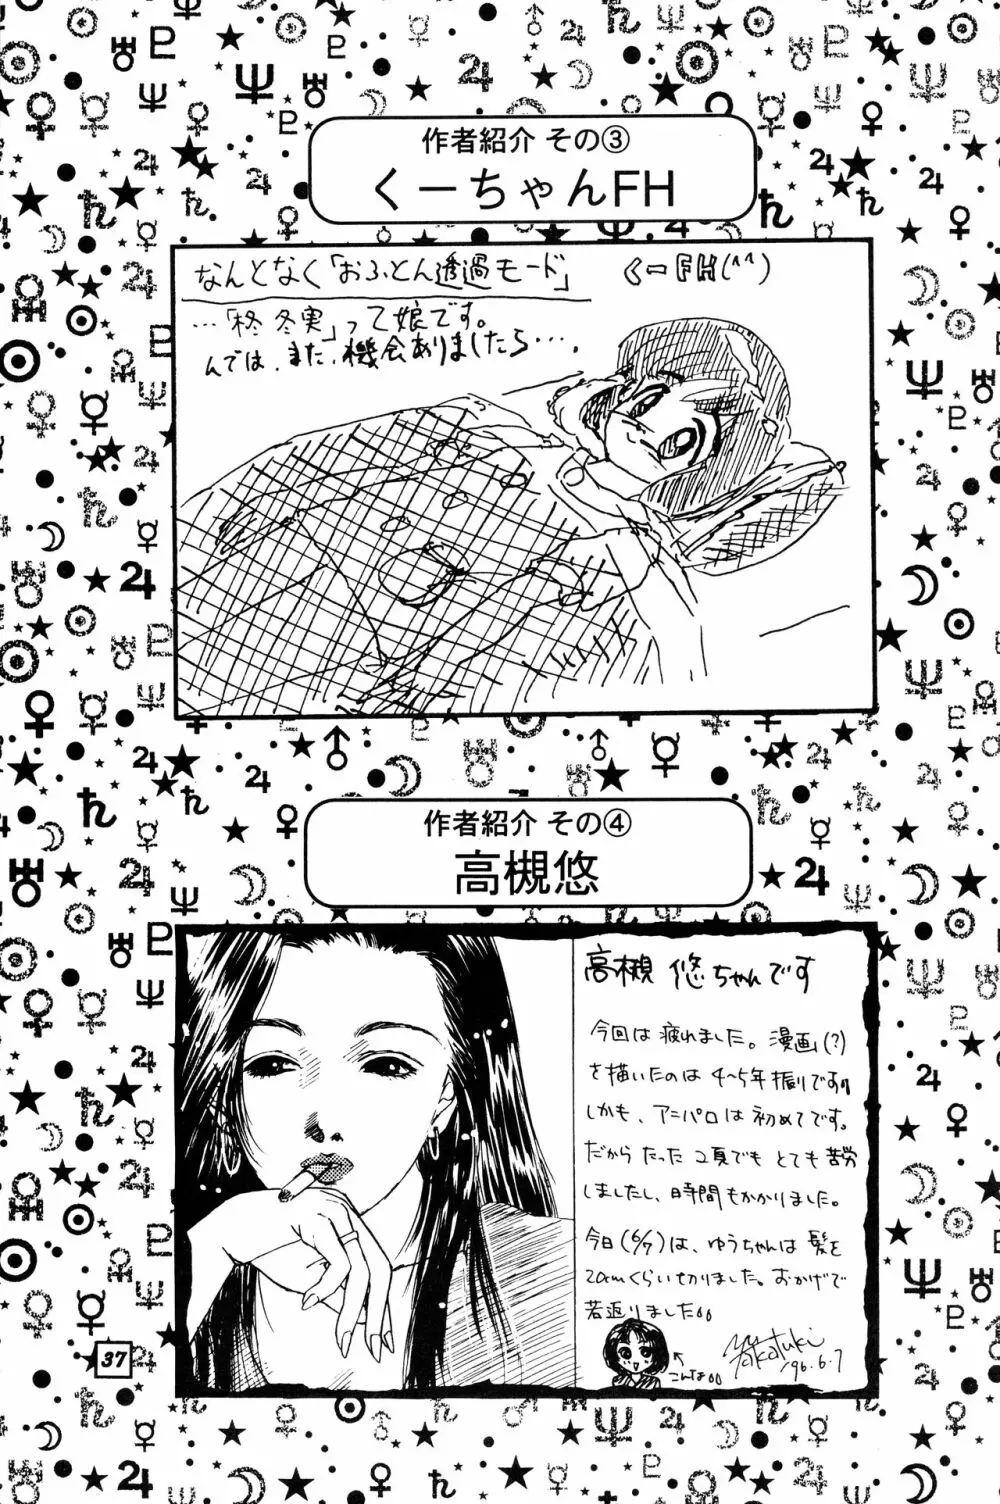 作者紹介 その③
くーちゃんFH
なんとなく「おふとん透過モード」
くーFH(^^)
…「柊 冬実」って娘です。
んでは、また、機会ありましたら…．
作者紹介 その④
高槻悠
高槻 悠ちゃんです
今回は疲れました。漫画(?)
を描いたのは 4〜5年振りです。
しかも、アニパロは初めてです。
だから たった 2頁でも とても苦労
しましたし、時間もかかりました。
今日(6/7)は、ゆうちゃんは 髪を
20cmくらい切りました。おかげで
若返りました。
こんな
Takatuki
'96.6.7
37